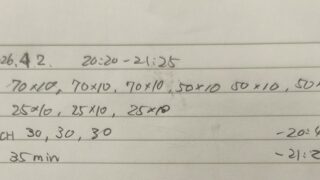 26.4 2. 20:20-21:25
70×10, 70×10, 70×10, 50×10 50×10, 50
25×10, 25×10, 25×10
CH 30, 30, 30 -20:
35min -21:2